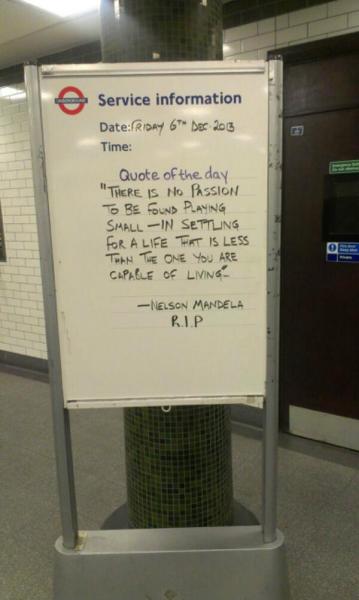 UNDERGROUND
Service information
Date: FRIDAY 6TH DEC 2013
Time:
Quote of the day
"THERE IS NO PASSION
TO BE FOUND PLAYING
SMALL – IN SETTLING
FOR A LIFE THAT IS LESS
THAN THE ONE YOU ARE
CAPABLE OF LIVING"
– NELSON MANDELA
R.I.P